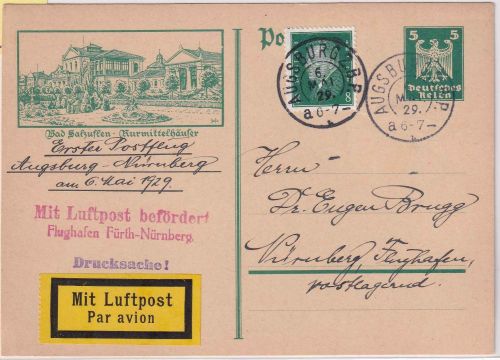 Po
5 5
Deutsches
Reich
8
AUGSBURG 2 B.P.
6.
MAI
29.
a 6-7-
AUGSBURG
MAI
29.
a 6-7-
Bad Salzuflen - Kurmittelhäuser
Erster Postflug
Augsburg-Nürnberg
am 6. Mai 1929.
Mit Luftpost befördert
Flughafen Fürth-Nürnberg.
Drucksache!
Mit Luftpost
Par avion
Herrn
Dr. Eugen Brugg
Nürnberg, Flughafen,
postlagernd.